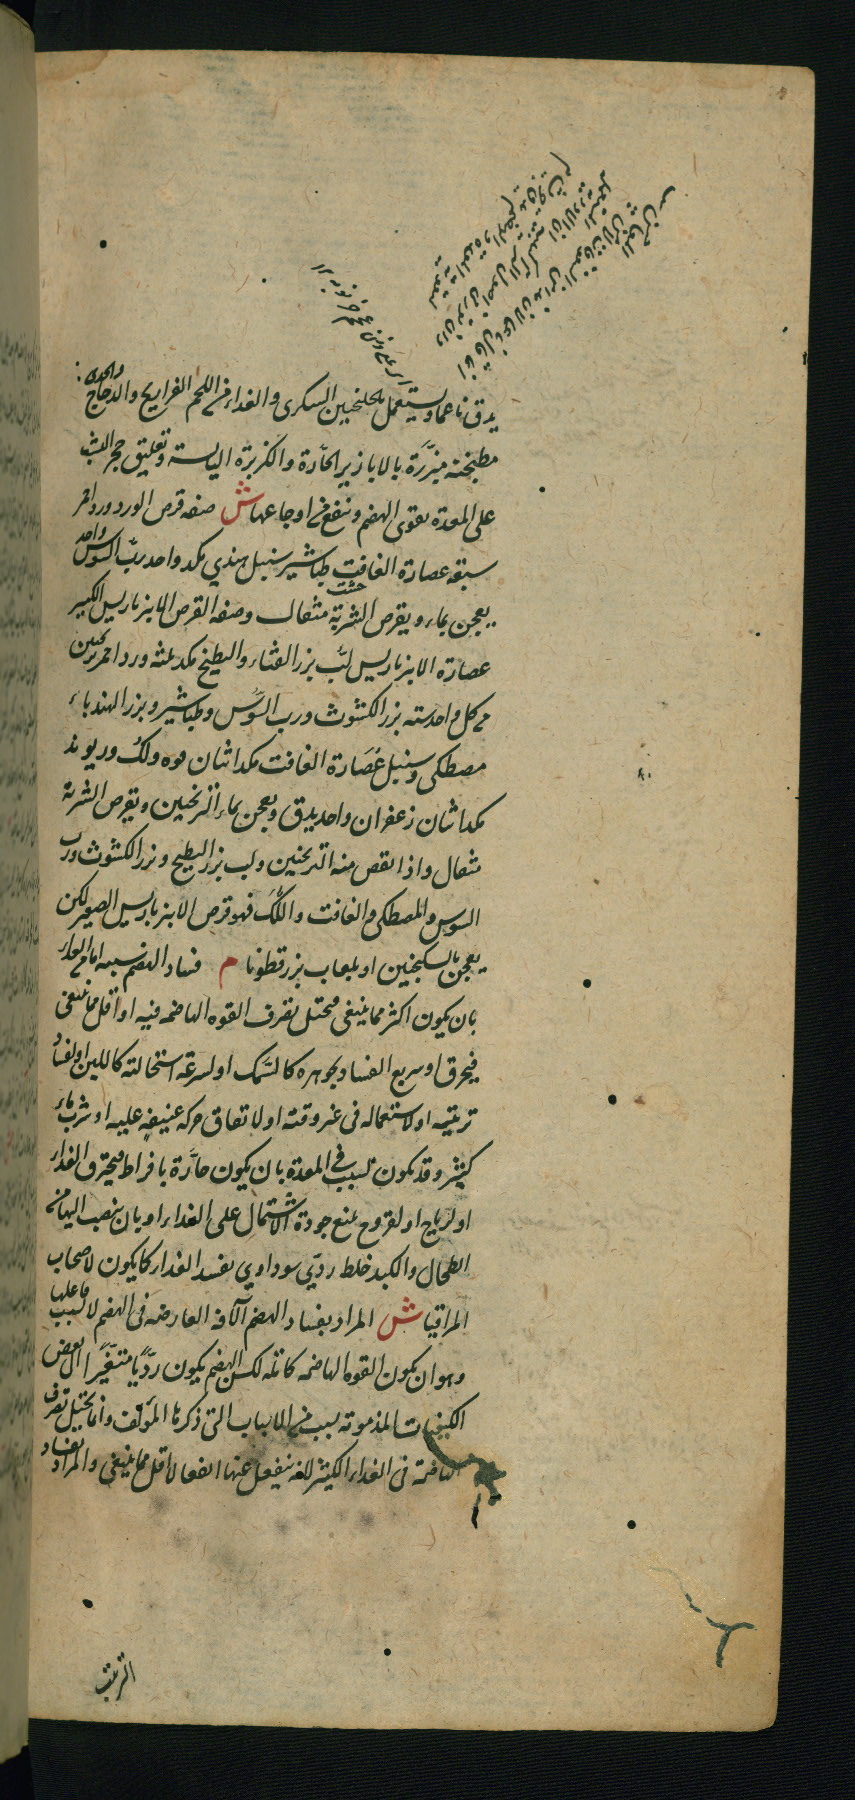 يدق ناعما ويستعمل بالجلنجبين السكرى والغذاء من اللحم الفراريج والدجاج
مطبخنه مبزرة بالابازير الحارة والكزبرة اليابسة وتعليق حجر اليشب
على المعدة يقوى الهضم وينفع من اوجاعها ش صفه قرص الورد ورد احمر
سبعه عصارة الغافت طباشير سنبل هندي مكد واحد رب السوس واحد
يعجن بماء ويقرص الشربة مثقال وصفه القرص الابنرباريس الكبير
عصارة الابنرباريس لب بزر القثاء والبطيخ مكد ثلثه ورد احمر ترنجبين
من كل واحد سته بزر الكشوث ورب السوس وطباشير وبزر الهندباء
مصطكى وسنبل عصارة الغافت مكد اثنان فوه ولك وريوند
مكد اثنان زعفران واحد يدق ويعجن بماء الترنجبين ويقرص الشربة
مثقال واذا نقص منه الترنجبين ولب بزر البطيخ وبزر الكشوث ورب
السوس والمصطكى والغافت واللك فهو قرص الابنرباريس الصغير لكن
يعجن بالسكنجبين او بلعاب بزر قطونا م فساد الهضم سببه اما من الغذاء
بان يكون اكثر مما ينبغى فيختل تصرف القوه الهاضمه فيه او اقل مما ينبغى
فيحرق او سريع الفساد بجوهره كالسمك او لسرعة استحالته كاللبن او لفساد
ترتيبه او لاستعماله فى غير وقته او لاتفاق حركه عنيفه عليه او شرب ماء
كثير وقد يكون لسبب في المعدة بان يكون حارة بافراط فيحترق الغذاء
او لرياح او لقروح يمنع جودة الاشتمال على الغذاء او بان ينصب اليها من
الطحال والكبد خلط ردي سوداوي يفسد الغذاء كما يكون لاصحاب
المراقيا ش المراد بفساد الهضم الآفه العارضه فى الهضم لا لسبب فاعلها
وهو ان يكون القوه الهاضمه كاملة لكن الهضم يكون رديا متغيرا الى بعض
الكيفيات المذمومه بسبب من الاسباب التى ذكرها المؤلف وانما يختل تصرف
الهاضمة فى الغذاء الكثير لانه ينفعل عنها انفعالا اقل مما ينبغى والمراد بفساد
الترتيب